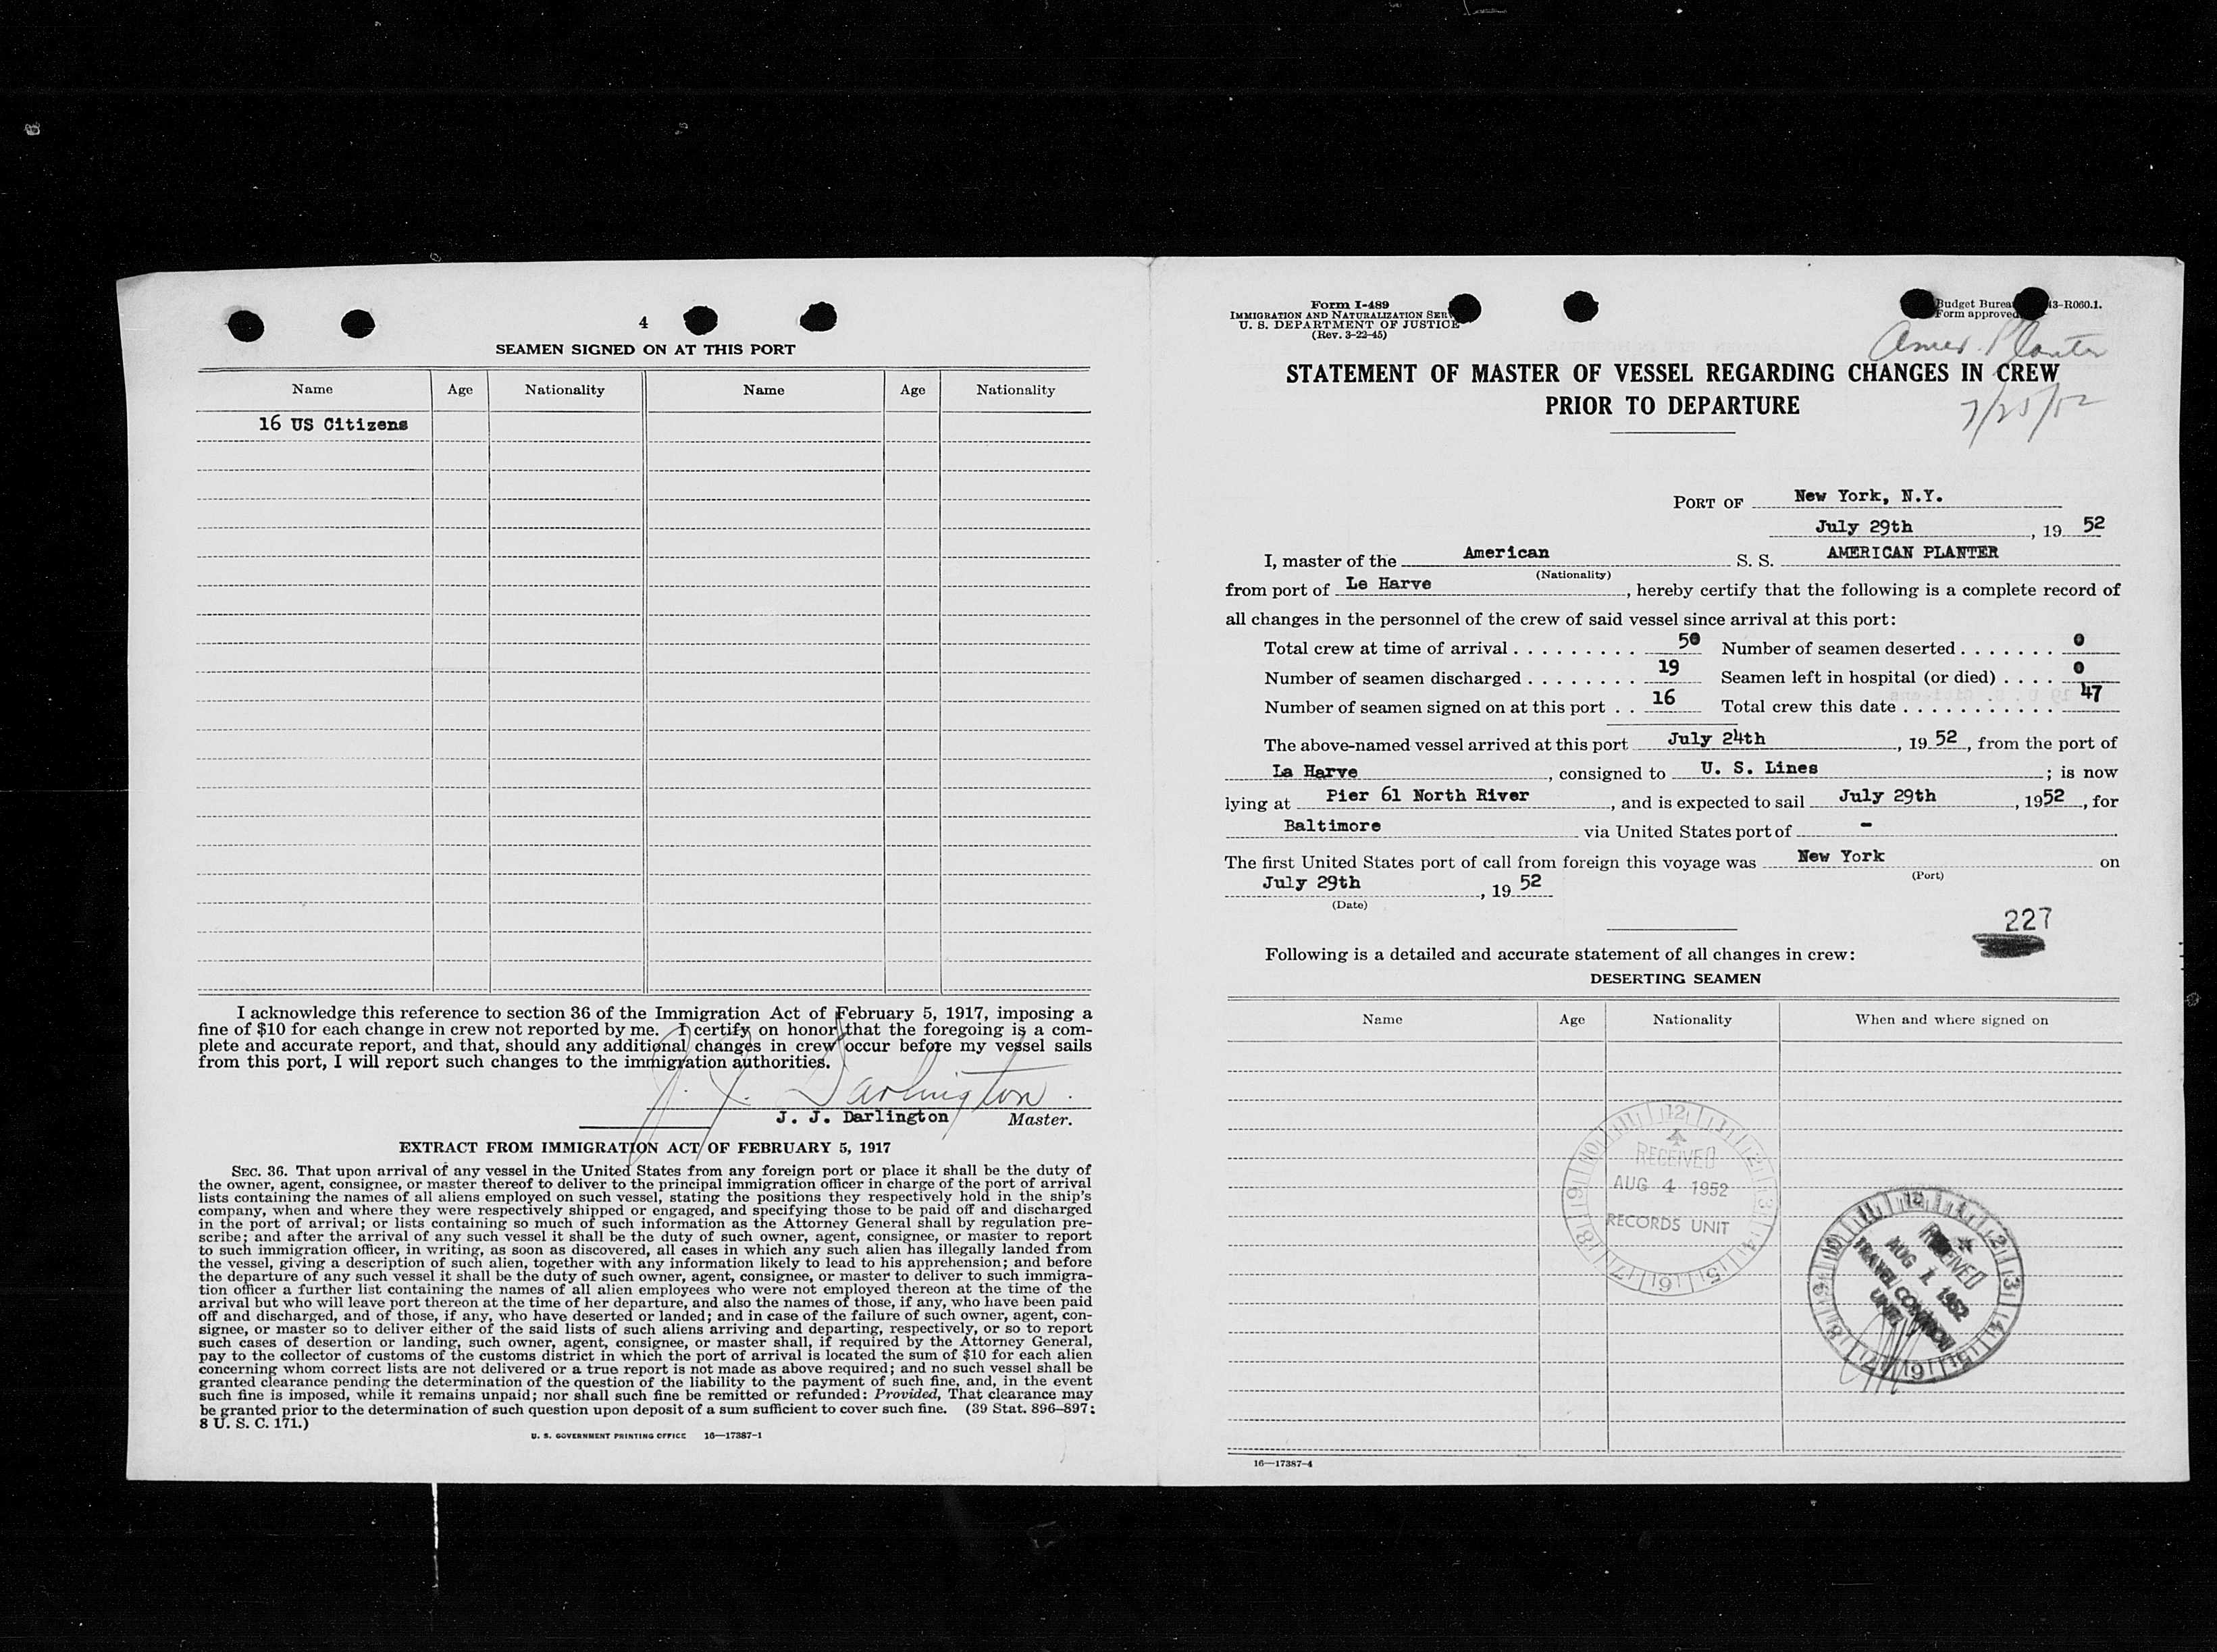 4
SEAMEN SIGNED ON AT THIS PORT
Name Age Nationality Name Age Nationality
16 US Citizens
I acknowledge this reference to section 36 of the Immigration Act of February 5, 1917, imposing a
fine of $10 for each change in crew not reported by me. I certify on honor that the foregoing is a com-
plete and accurate report, and that, should any additional changes in crew occur before my vessel sails
from this port, I will report such changes to the immigration authorities.
J. J. Darlington
J. J. Darlington Master.
EXTRACT FROM IMMIGRATION ACT OF FEBRUARY 5, 1917
SEC. 36. That upon arrival of any vessel in the United States from any foreign port or place it shall be the duty of
the owner, agent, consignee, or master thereof to deliver to the principal immigration officer in charge of the port of arrival
lists containing the names of all aliens employed on such vessel, stating the positions they respectively hold in the ship's
company, when and where they were respectively shipped or engaged, and specifying those to be paid off and discharged
in the port of arrival; or lists containing so much of such information as the Attorney General shall by regulation pre-
scribe; and after the arrival of any such vessel it shall be the duty of such owner, agent, consignee, or master to report
to such immigration officer, in writing, as soon as discovered, all cases in which any such alien has illegally landed from
the vessel, giving a description of such alien, together with any information likely to lead to his apprehension; and before
the departure of any such vessel it shall be the duty of such owner, agent, consignee, or master to deliver to such immigra-
tion officer a further list containing the names of all alien employees who were not employed thereon at the time of the
arrival but who will leave port thereon at the time of her departure, and also the names of those, if any, who have been paid
off and discharged, and of those, if any, who have deserted or landed; and in case of the failure of such owner, agent, con-
signee, or master so to deliver either of the said lists of such aliens arriving and departing, respectively, or so to report
such cases of desertion or landing, such owner, agent, consignee, or master shall, if required by the Attorney General,
pay to the collector of customs of the customs district in which the port of arrival is located the sum of $10 for each alien
concerning whom correct lists are not delivered or a true report is not made as above required; and no such vessel shall be
granted clearance pending the determination of the question of the liability to the payment of such fine, and, in the event
such fine is imposed, while it remains unpaid; nor shall such fine be remitted or refunded: Provided, That clearance may
be granted prior to the determination of such question upon deposit of a sum sufficient to cover such fine. (39 Stat. 896–897;
8 U. S. C. 171.)
U. S. GOVERNMENT PRINTING OFFICE 16—17387-1
Form I-489
IMMIGRATION AND NATURALIZATION SER
U. S. DEPARTMENT OF JUSTICE
(Rev. 3-22-45)
Budget Burea 43-R060.1.
Form approved
Amer. Planter
7/25/52
STATEMENT OF MASTER OF VESSEL REGARDING CHANGES IN CREW
PRIOR TO DEPARTURE
PORT OF New York, N.Y.
July 29th, 19 52
I, master of the American S. S. AMERICAN PLANTER
(Nationality)
from port of Le Harve, hereby certify that the following is a complete record of
all changes in the personnel of the crew of said vessel since arrival at this port:
Total crew at time of arrival . . . . . . . . . 50 Number of seamen deserted . . . . . . . 0
Number of seamen discharged . . . . . . . . 19 Seamen left in hospital (or died) . . . . 0
Number of seamen signed on at this port . . 16 Total crew this date . . . . . . . . . . . 47
The above-named vessel arrived at this port July 24th, 19 52, from the port of
La Harve, consigned to U. S. Lines; is now
lying at Pier 61 North River, and is expected to sail July 29th, 1952, for
Baltimore via United States port of -
The first United States port of call from foreign this voyage was New York on
(Port)
July 29th, 19 52
(Date)
227
Following is a detailed and accurate statement of all changes in crew:
DESERTING SEAMEN
Name Age Nationality When and where signed on
RECEIVED
AUG 4 1952
RECORDS UNIT
RECEIVED
AUG 1 1952
TRAVEL CONTROL
UNIT
16—17387-4